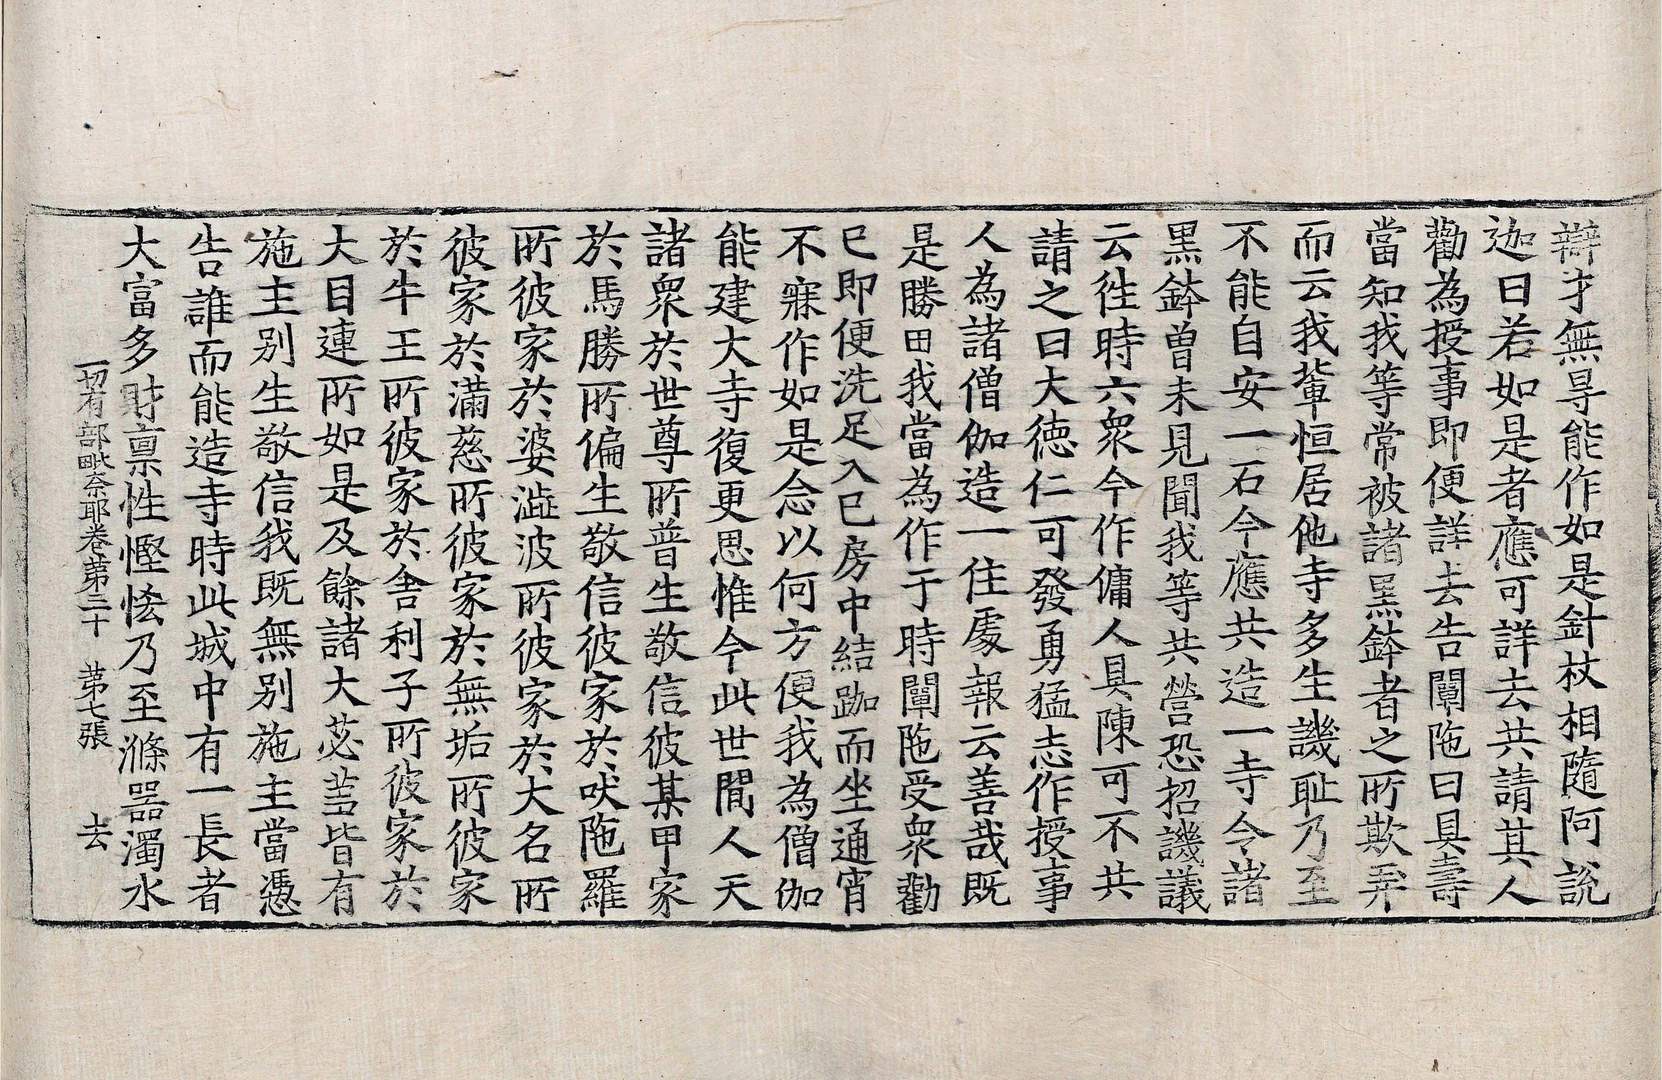 辯才無㝵能作如是針杖相隨阿說
迦曰若如是者應可詳去共請其人
勸為授事即便詳去告闡陁曰具壽
當知我等常被諸黑鉢者之所欺弄
而云我輩恒居他寺多生譏耻乃至
不能自安一石今應共造一寺令諸
黑鉢曾未見聞我等共營恐招譏議
云往時六衆今作傭人具陳可不共
請之曰大德仁可發勇猛志作授事
人為諸僧伽造一住處報云善哉既
是勝田我當為作于時闡陁受衆勸
已即便洗足入己房中結跏而坐通宵
不寐作如是念以何方便我為僧伽
能建大寺復更思惟今此世間人天
諸衆於世尊所普生敬信彼某甲家
於馬勝所偏生敬信彼家於吠陁羅
所彼家於婆澁波所彼家於大名所
彼家於滿慈所彼家於無垢所彼家
於牛王所彼家於舍利子所彼家於
大目連所如是及餘諸大苾蒭皆有
施主別生敬信我既無別施主當憑
告誰而能造寺時此城中有一長者
大富多財稟性慳悋乃至滌器濁水
一切有部毗奈耶卷第三十　第七張　去